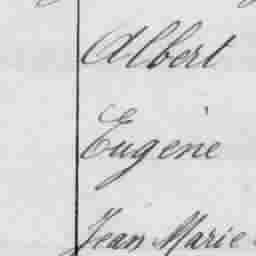 Albert
Eugène
Jean Marie